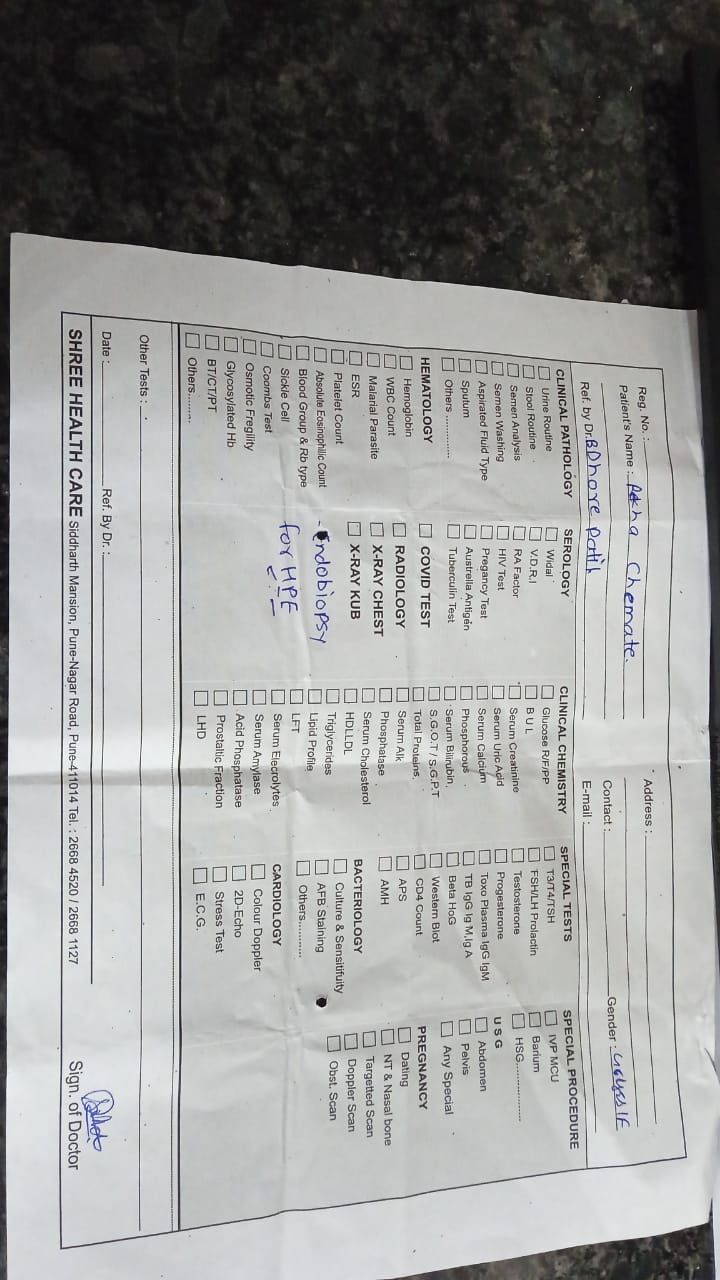 Reg. No. :
Patient's Name : Chemate.
Ref. by Dr. B Dhore Patil
Address :
Contact :
Gender :
E-mail :
CLINICAL PATHOLOGY
Urine Routine
Stool Routine
Semen Analysis
Semen Washing
Aspirated Fluid Type
Sputum
Others ..............
HEMATOLOGY
Hemoglobin
WBC Count
Malarial Parasite
ESR
Platelet Count
Absolute Eosinophilic Count
Blood Group & Rb type
Sickle Cell
Coombs Test
Osmotic Fregility
Glycosylated Hb
BT/CT/PT
Others.........
SEROLOGY
Widal
V.D.R.I
RA Factor
HIV Test
Pregancy Test
Austrelia Antigen
Tuberculin Test
COVID TEST
RADIOLOGY
X-RAY CHEST
X-RAY KUB
- Endobiopsy
for HPE
CLINICAL CHEMISTRY
Glucose R/F/PP
B U L
Serum Creatinine
Serum Uric Acid
Serum Calcium
Phosphorous
Serum Bilirubin,
S.G.O.T / S.G.P.T
Total Proteins,
Serum Alk
Phosphatase
Serum Cholesterol
HDLLDL
Triglycerides
Lipid Profile
LFT
Serum Elecrolytes
Serum Amylase
Acid Phosphatase
Prostaltic Fraction
LHD
SPECIAL TESTS
T3/T4/TSH
FSH/LH Prolactin
Testosterone
Progesterone
Toxo Plasma IgG IgM
TB IgG Ig M,Ig A
Beta HoG
Western Blot
CD4 Count
APS
AMH
BACTERIOLOGY
Culture & Sensitifuity
AFB Staining
Others...........
CARDIOLOGY
Colour Doppler
2D-Echo
Stress Test
E.C.G.
SPECIAL PROCEDURE
IVP MCU
Barium
HSG................
U S G
Abdomen
Pelvis
Any Special
PREGNANCY
Dating
NT & Nasal bone
Targetted Scan
Doppler Scan
Obst. Scan
Other Tests :
Date :
Ref. By Dr. :
SHREE HEALTH CARE Siddharth Mansion, Pune-Nagar Road, Pune-411014 Tel. : 2668 4520 / 2668 1127
Sign. of Doctor